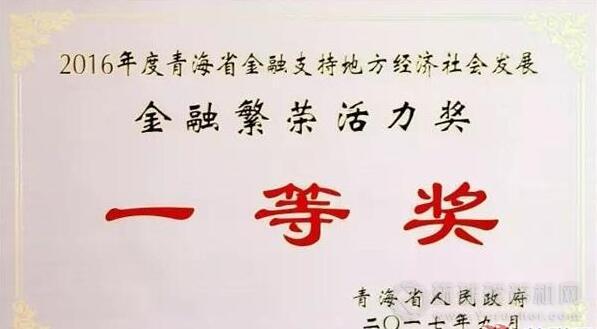 2016年度青海省金融支持地方经济社会发展
金融繁荣活力奖
一等奖
青海省人民政府
二〇一七年九月